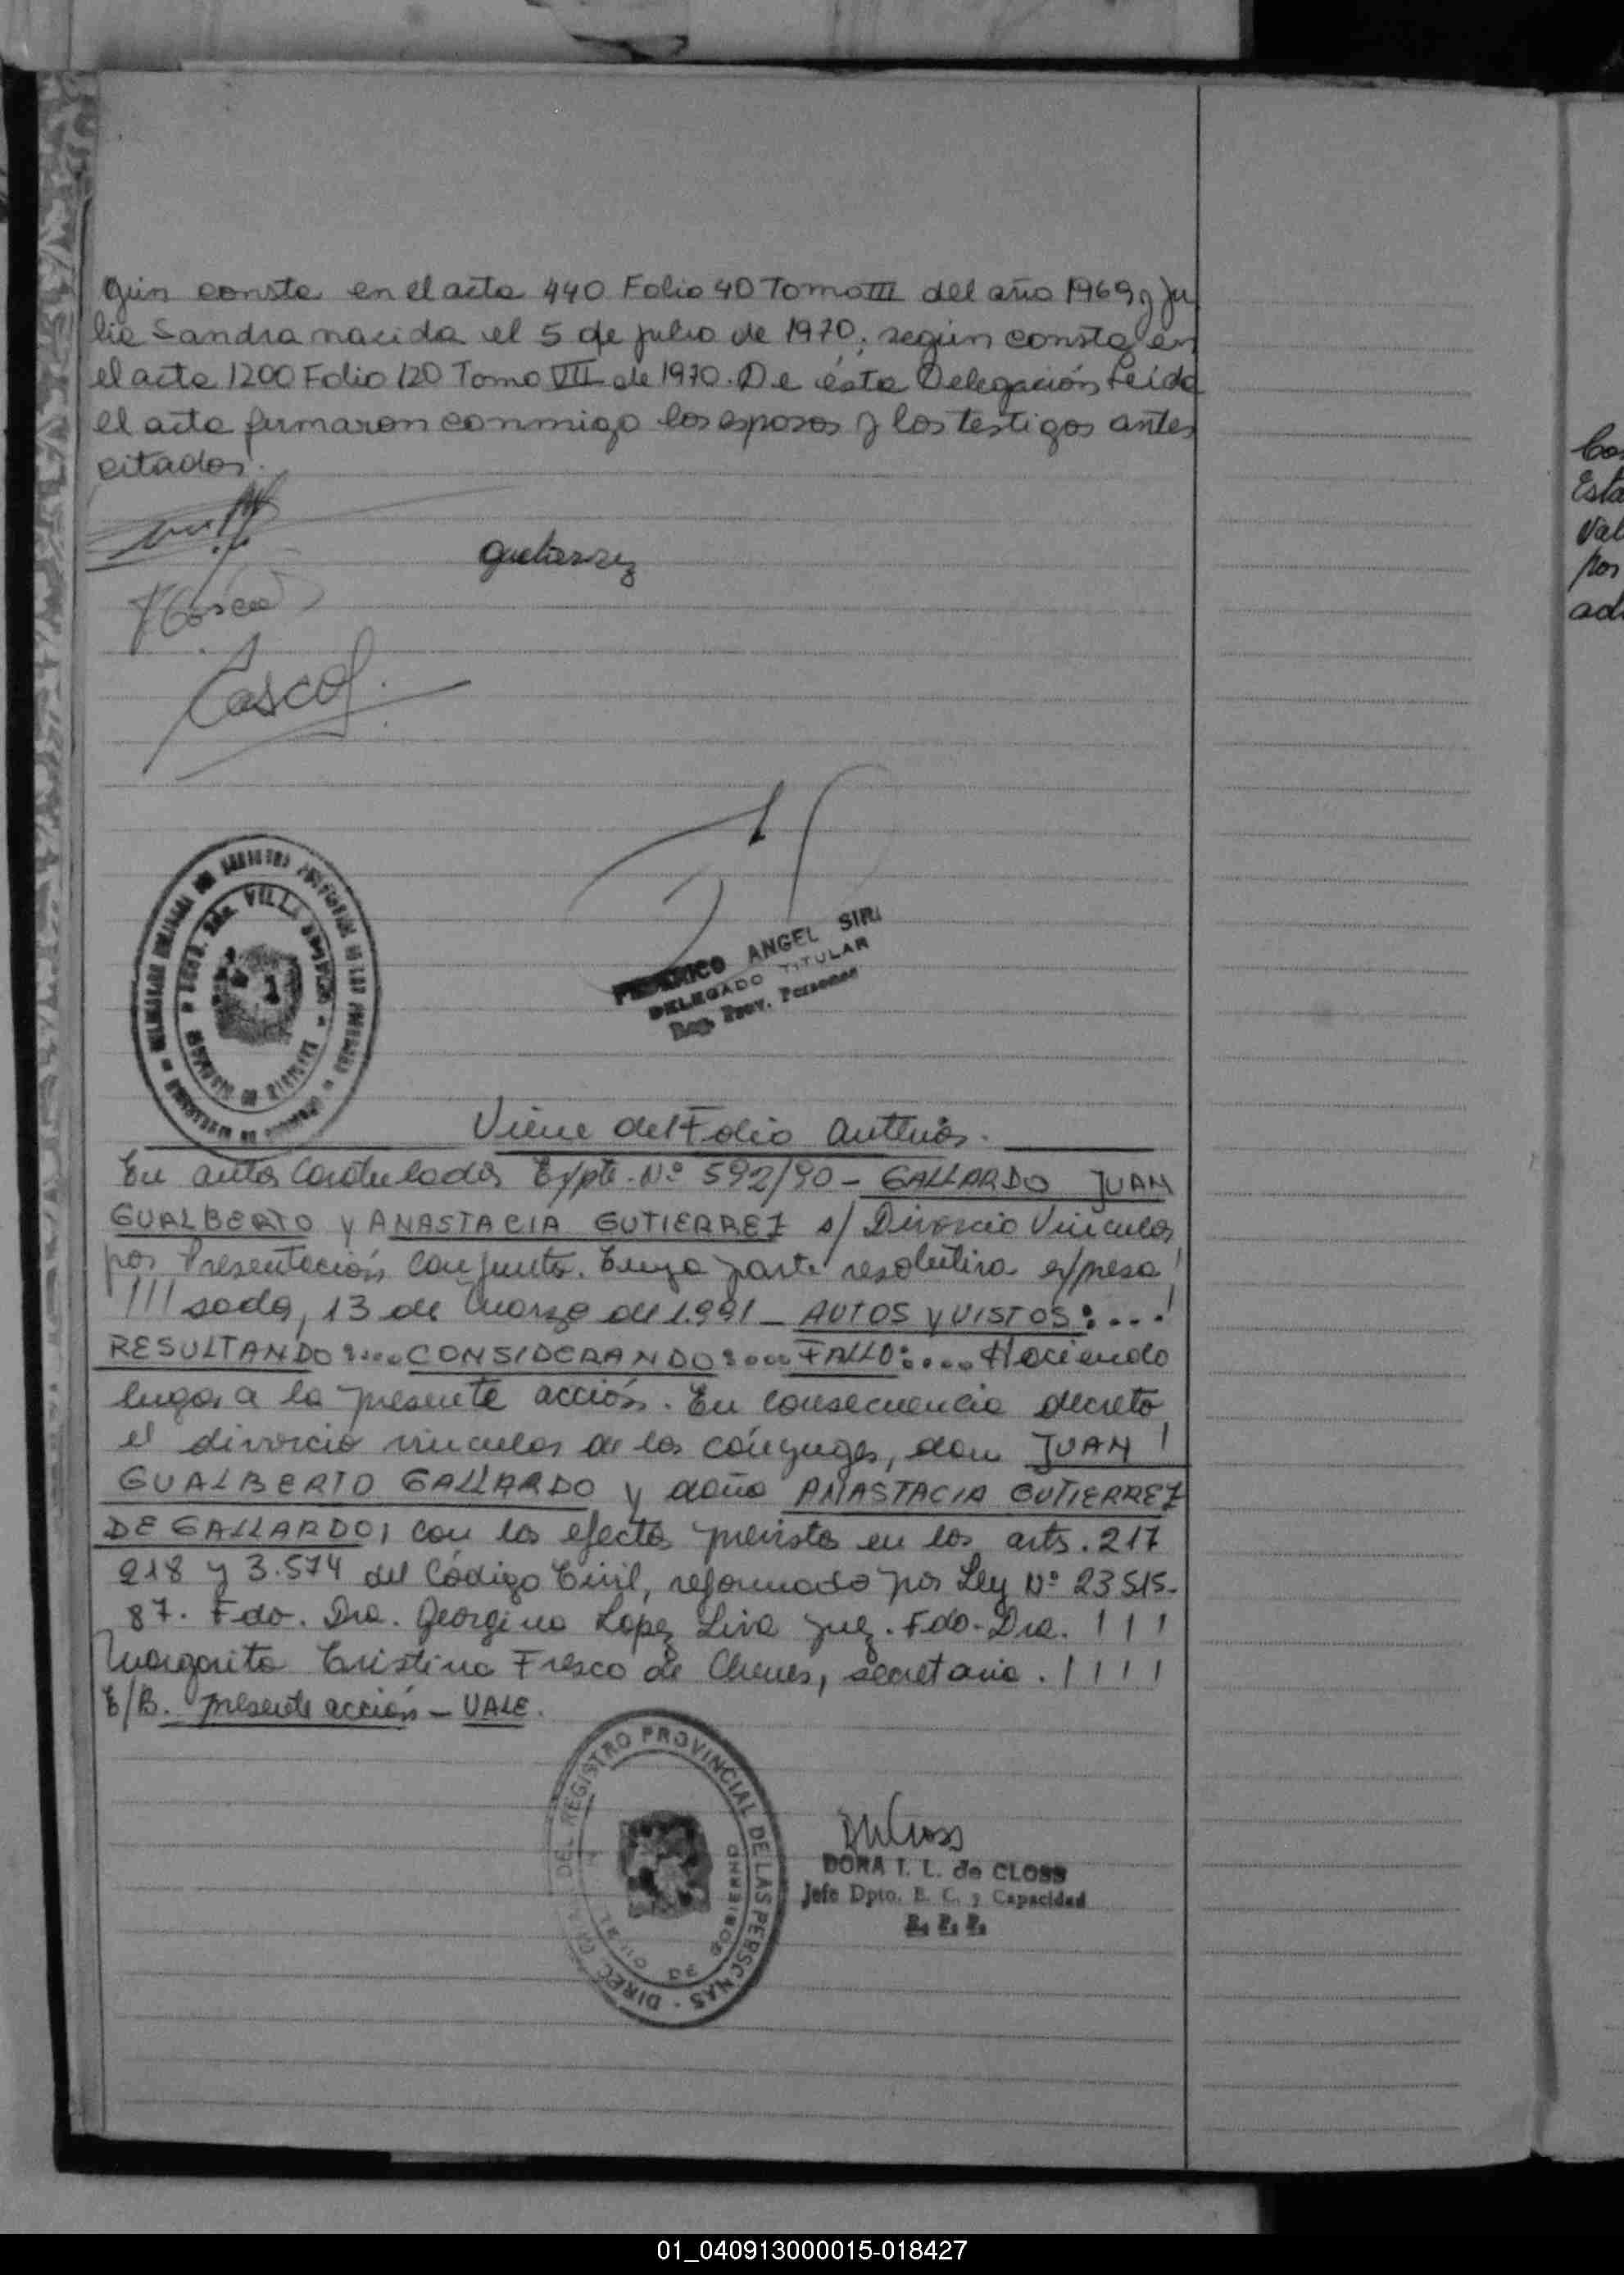 gún consta en el acta 440 Folio 40 Tomo III del año 1969 y Ju
lia Sandra nacida el 5 de julio de 1970, según consta en
el acta 1200 Folio 120 Tomo VII de 1970. De ésta Delegación Leida
el acta firmaron conmigo los esposos y los testigos antes
citados.
Gutierrez
Casco
FEDERICO ANGEL SIRI
DELEGADO TITULAR
Reg. Prov. Personas
Viene del Folio anterior.
En autos Caratulados Expte. Nº 592/90 - GALLARDO JUAN
GUALBERTO y ANASTACIA GUTIERREZ s/ Divorcio Vincular
por Presentación Conjunta. Cuya parte resolutiva expresa
/// sadas, 13 de Marzo de 1.991 - AUTOS y VISTOS: ...
RESULTANDO: .... CONSIDERANDO: .... FALLO: .... Haciendo
lugar a la presente acción. En consecuencia decreto
el divorcio vincular de los cónyuges, don JUAN
GUALBERTO GALLARDO y doña ANASTACIA GUTIERREZ
DE GALLARDO, con los efectos previstos en los arts. 217
218 y 3.574 del Código Civil, reformado por Ley Nº 23515-
87. Fdo. Dra. Georgina Lopez Liva Juez. Fdo-Dra. ! ! !
Margarita Cristina Fresco de Chenes, secretaria. ! ! ! !
E/B. presente acción - VALE.
DIREC. GRAL. DEL REGISTRO PROVINCIAL DE LAS PERSONAS
DORA T. L. de CLOSS
Jefe Dpto. E. C. y Capacidad
R. P. P.
Esta
Val
por
ad
01_040913000015-018427